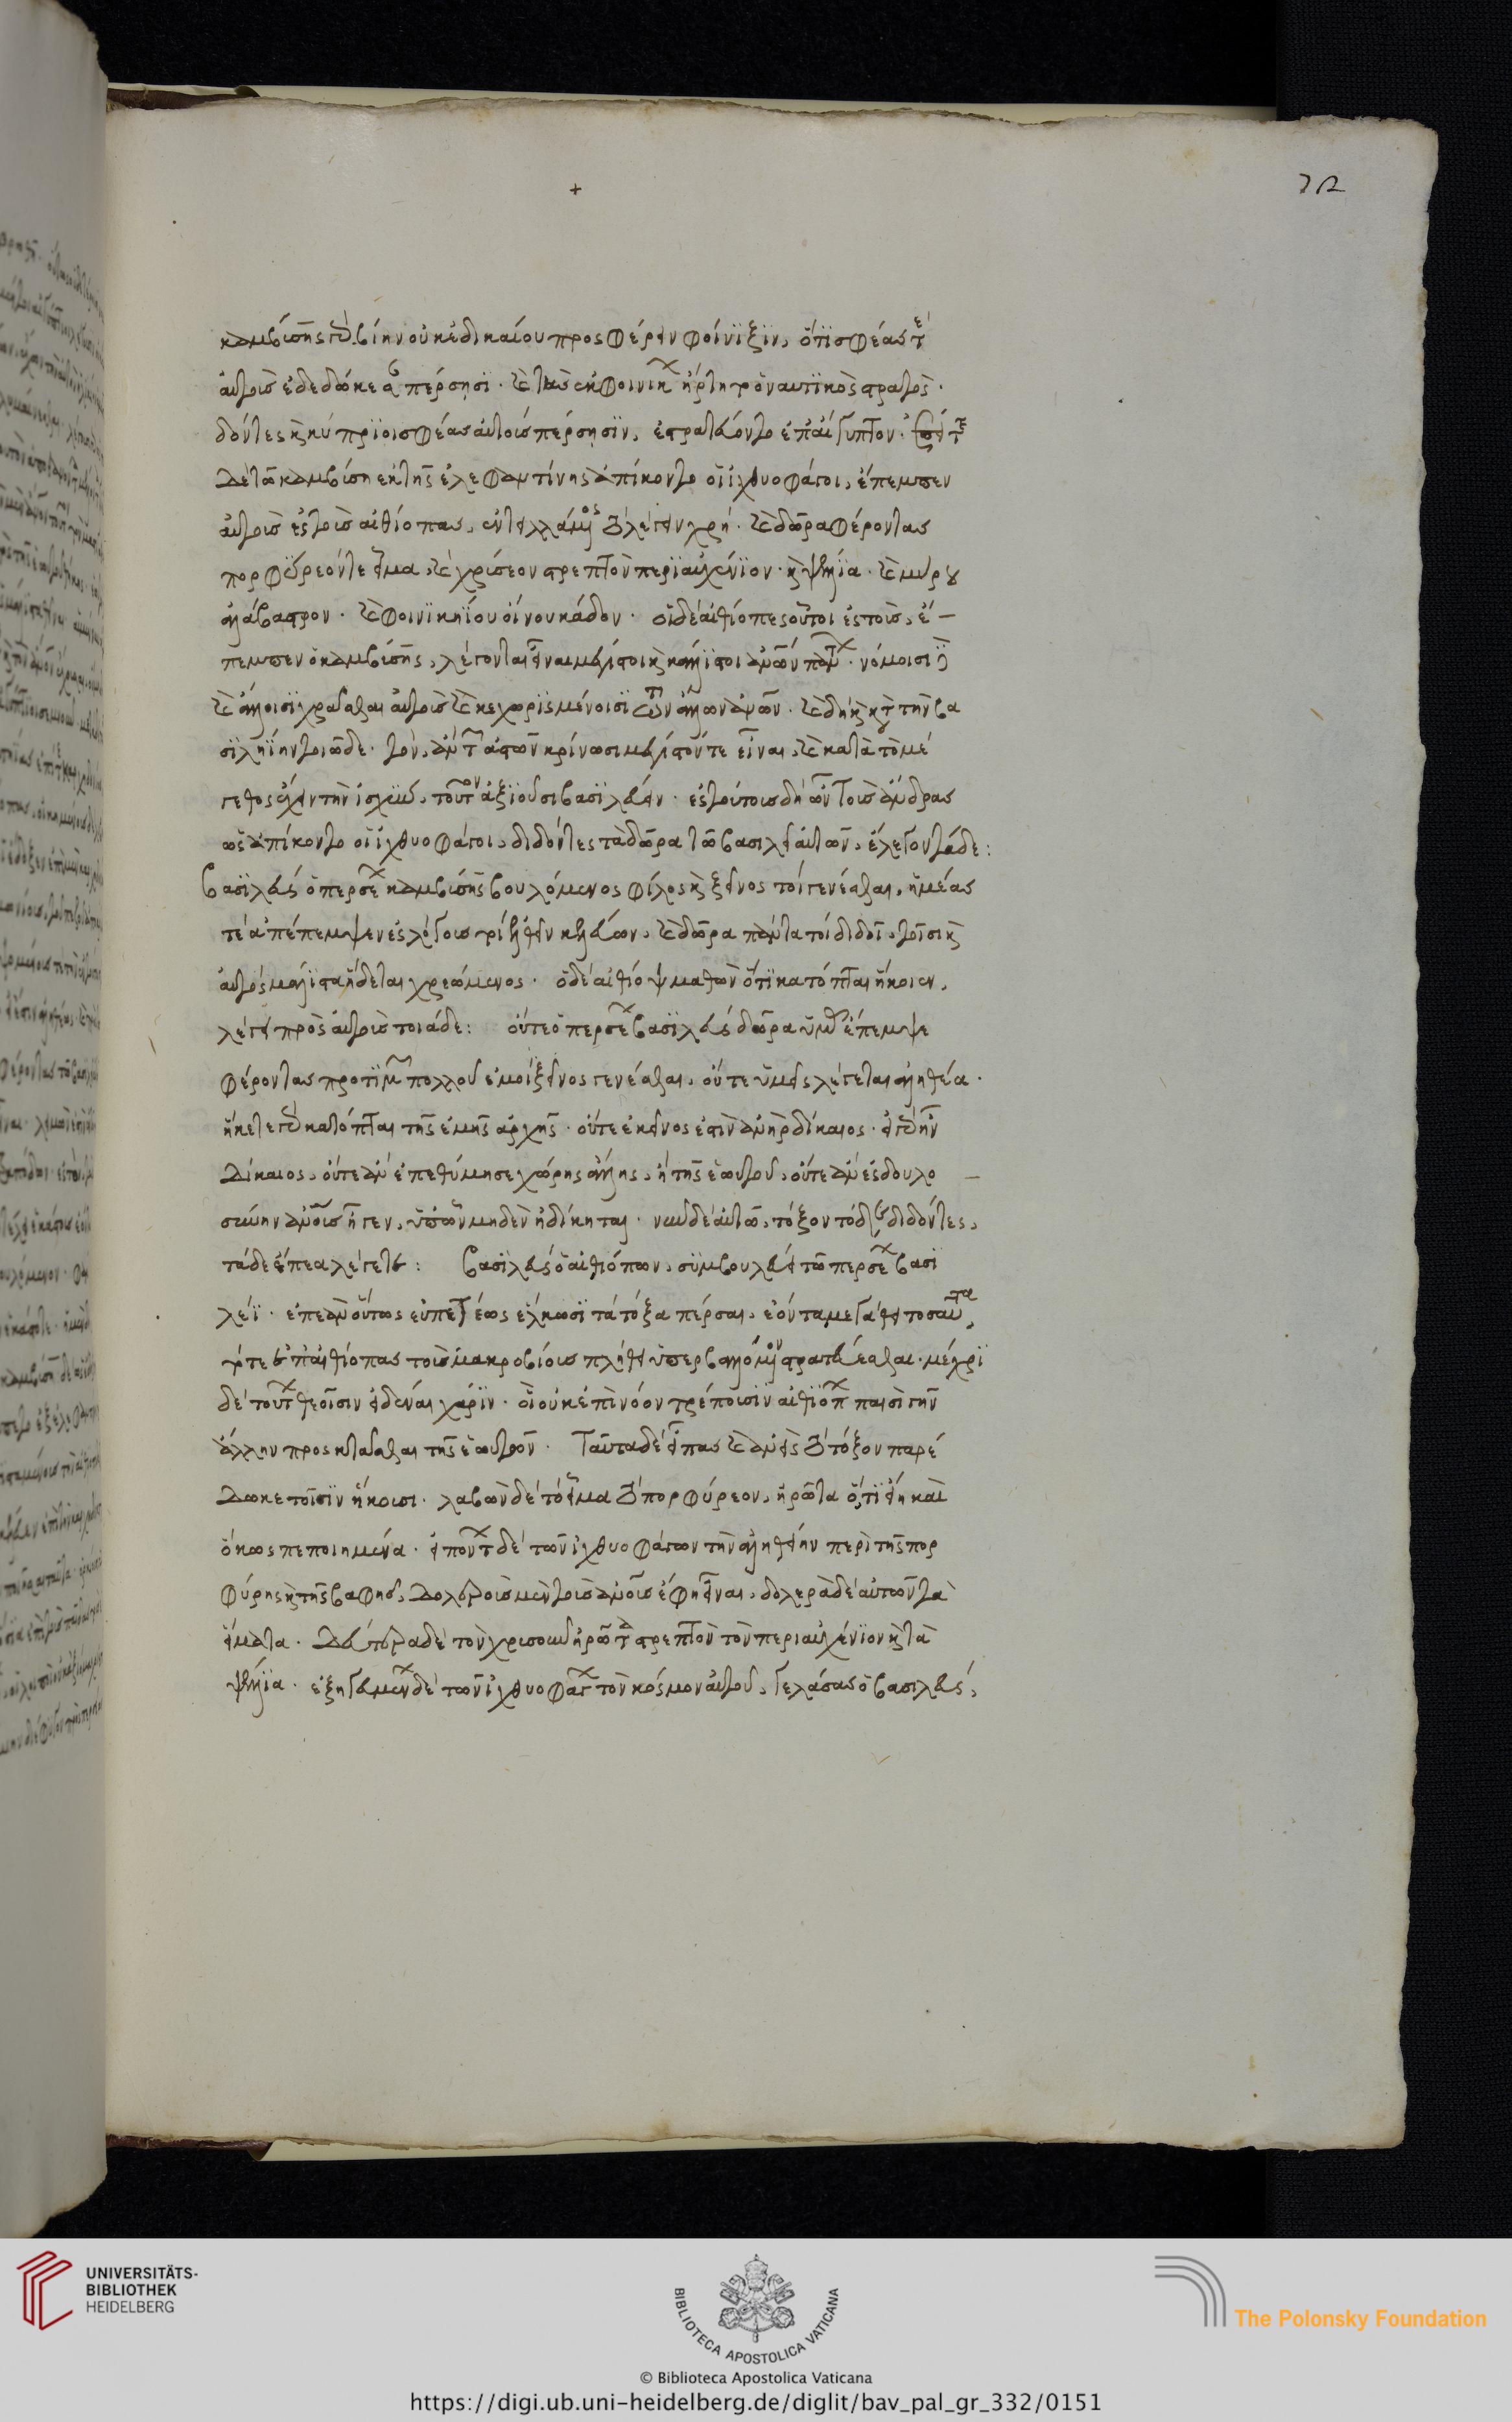 +
72
καμβύσης γὰρ βίην οὐκ ἐδικαίου προσφέρειν φοίνιξιν, ὅτι σφέας τὲ
αὐτοὺς ἐδεδώκεσαν πέρσησι. καὶ πᾶς ἐκ φοινίκων ἤρτητο ὁ ναυτικὸς στρατός.
δόντες καὶ κύπριοι σφέας αὐτοὺς πέρσησιν, ἐστρατεύοντο ἐπ' αἴγυπτον.
δὲ τῷ καμβύση ἐκ τῆς ἐλεφαντίνης ἀπίκοντο οἱ ἰχθυοφάγοι, ἔπεμπεν
αὐτοὺς ἐς τοὺς αἰθίοπας, ἐντειλάμενος τὰ λέγειν χρή. καὶ δῶρα φέροντας
πορφύρεόν τε εἷμα, καὶ χρύσεον στρεπτὸν περιαυχένιον. καὶ ψέλια. καὶ μύρου
ἀλάβαστρον. καὶ φοινικηίου οἴνου κάδον. οἱ δὲ αἰθίοπες οὗτοι ἐς τοὺς, ἔ-
πεμπεν ὁ καμβύσης, λέγονται εἶναι μέγιστοι καὶ κάλλιστοι ἀνθρώπων πάντων. νόμοισι δὲ
καὶ ἄλλοισι χρᾶσθαι αὐτοὺς καὶ κεχωρισμένοισι τῶν ἄλλων ἀνθρώπων. καὶ δὴ καὶ κατὰ τὴν βα
σιληΐην τοιῶδε. τὸν, ἂν τῶν ἀστῶν κρίνωσι μέγιστόν τε εἶναι, καὶ κατὰ τὸ μέ
γεθος ἔχειν τὴν ἰσχὺν, τοῦτον ἀξιοῦσι βασιλεύειν. ἐς τούτους δὴ ὦν τοὺς ἄνδρας
ὡς ἀπίκοντο οἱ ἰχθυοφάγοι, διδόντες τὰ δῶρα τῷ βασιλεῖ αὐτῶν, ἔλεγον τάδε:
βασιλεὺς ὁ περσέων καμβύσης βουλόμενος φίλος καὶ ξεῖνος τοι γενέσθαι, ἡμέας
τὲ ἀπέπεμψεν ἐς λόγους τοι ἐλθεῖν κελεύων, καὶ δῶρα ταῦτα τοι διδοῖ, τοῖσι καὶ
αὐτὸς μάλιστα ἥδεται χρεώμενος. ὁ δὲ αἰθίοψ μαθὼν ὅτι κατόπται ἥκοιεν,
λέγει πρὸς αὐτοὺς τοιάδε: οὔτε ὁ περσέων βασιλεὺς δῶρα ὑμέας ἔπεμψε
φέροντας προτιμῶν πολλοῦ ἐμοὶ ξεῖνος γενέσθαι, οὔτε ὑμεῖς λέγετε ἀληθέα.
ἥκετε γὰρ κατόπται τῆς ἐμῆς ἀρχῆς. οὔτε ἐκεῖνος ἐστὶν ἀνὴρ δίκαιος. εἰ γὰρ ἦν
δίκαιος, οὔτε ἂν ἐπεθύμησε χώρης ἄλλης, ἢ τῆς ἑωυτοῦ, οὔτε ἂν ἐς δουλο-
σύνην ἀνθρώπους ἦγεν, ὑπ' ὧν μηδὲν ἠδίκηται. νῦν δὲ αὐτῷ, τόξον τόδε διδόντες,
τάδε ἔπεα λέγετε: βασιλεὺς ὁ αἰθιόπων, συμβουλεύει τῷ περσέων βασι
λέϊ. ἐπεὰν οὕτως εὐπετέως ἕλκωσι τὰ τόξα πέρσαι, ἐόντα μεγάθεϊ τοσαῦτα,
τότε ἐπ' αἰθίοπας τοὺς μακροβίους πλήθεϊ ὑπερβαλλόμενον στρατεύεσθαι. μέχρι
δὲ τούτου θεοῖσιν εἰδέναι χάριν. οἳ οὐκ ἐπὶ νόον τρέπουσιν αἰθιόπων παισὶ γῆν
ἄλλην προσκτᾶσθαι τῆς ἑωυτῶν. Ταῦτα δὲ εἴπας καὶ ἀνεὶς τὸ τόξον παρέ
δωκε τοῖσιν ἥκουσι. λαβὼν δὲ τὸ εἷμα τὸ πορφύρεον, ἠρώτα ὅ,τι εἴη καὶ
ὅκως πεποιημένα. εἰπόντων δὲ τῶν ἰχθυοφάγων τὴν ἀληθείην περὶ τῆς πορ
φύρης καὶ τῆς βαφῆς, δολεροὺς μὲν τοὺς ἀνθρώπους ἔφη εἶναι, δολερὰ δὲ αὐτῶν τὰ
εἵματα. δεύτερα δὲ τὸν χρυσοῦν ἠρώτα στρεπτὸν τὸν περιαυχένιον καὶ τὰ
ψέλια. ἐξηγευμένων δὲ τῶν ἰχθυοφάγων τὸν κόσμον αὐτοῦ, γελάσας ὁ βασιλεύς,
UNIVERSITÄTS-
BIBLIOTHEK
HEIDELBERG
BIBLIOTECA APOSTOLICA VATICANA
The Polonsky Foundation
© Biblioteca Apostolica Vaticana
https://digi.ub.uni-heidelberg.de/diglit/bav_pal_gr_332/0151